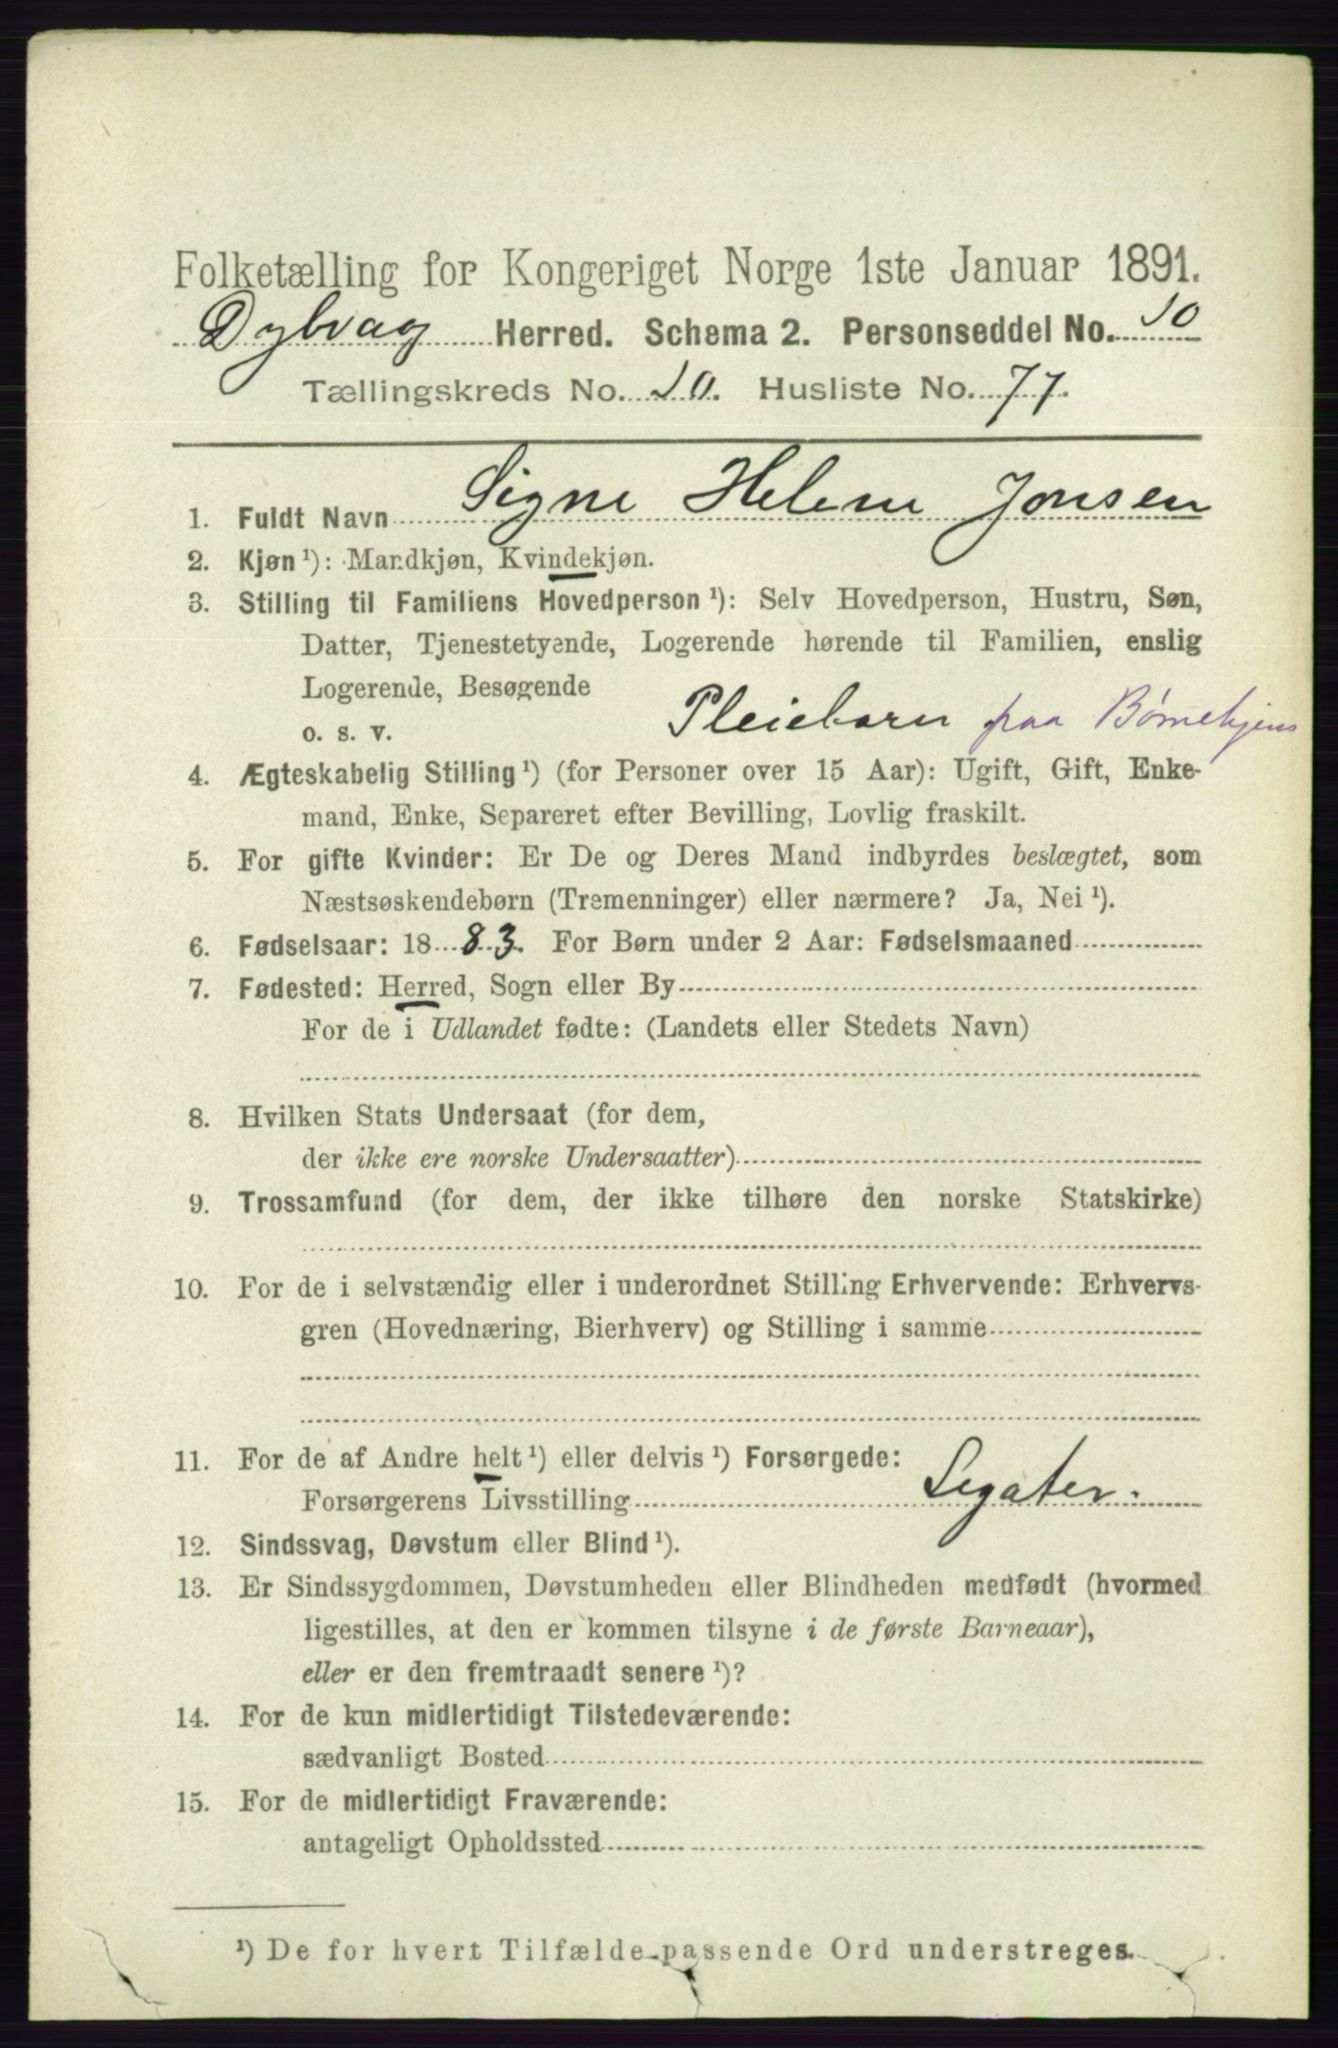 Folketælling for Kongeriget Norge 1ste Januar 1891.
Dybvag Herred. Schema 2. Personseddel No. 10
Tællingskreds No. 10. Husliste No. 77.
1. Fuldt Navn Signe Helene Jonsen
2. Kjøn ¹): Mandkjøn, Kvindekjøn.
3. Stilling til Familiens Hovedperson ¹): Selv Hovedperson, Hustru, Søn,
Datter, Tjenestetyende, Logerende hørende til Familien, enslig
Logerende, Besøgende
o. s. v. Pleiebarn paa Børnehjems
4. Ægteskabelig Stilling ¹) (for Personer over 15 Aar): Ugift, Gift, Enke-
mand, Enke, Separeret efter Bevilling, Lovlig fraskilt.
5. For gifte Kvinder: Er De og Deres Mand indbyrdes beslægtet, som
Næstsøskendebørn (Tremenninger) eller nærmere? Ja, Nei ¹).
6. Fødselsaar: 1883. For Børn under 2 Aar: Fødselsmaaned
7. Fødested: Herred, Sogn eller By
For de i Udlandet fødte: (Landets eller Stedets Navn)
8. Hvilken Stats Undersaat (for dem,
der ikke ere norske Undersaatter)
9. Trossamfund (for dem, der ikke tilhøre den norske Statskirke)
10. For de i selvstændig eller i underordnet Stilling Erhvervende: Erhvervs-
gren (Hovednæring, Bierhverv) og Stilling i samme
11. For de af Andre helt ¹) eller delvis ¹) Forsørgede:
Forsørgerens Livsstilling Legater.
12. Sindssvag, Døvstum eller Blind ¹).
13. Er Sindssygdommen, Døvstumheden eller Blindheden medfødt (hvormed
ligestilles, at den er kommen tilsyne i de første Barneaar),
eller er den fremtraadt senere ¹)?
14. For de kun midlertidigt Tilstedeværende:
sædvanligt Bosted
15. For de midlertidigt Fraværende:
antageligt Opholdssted
¹) De for hvert Tilfælde passende Ord understreges.